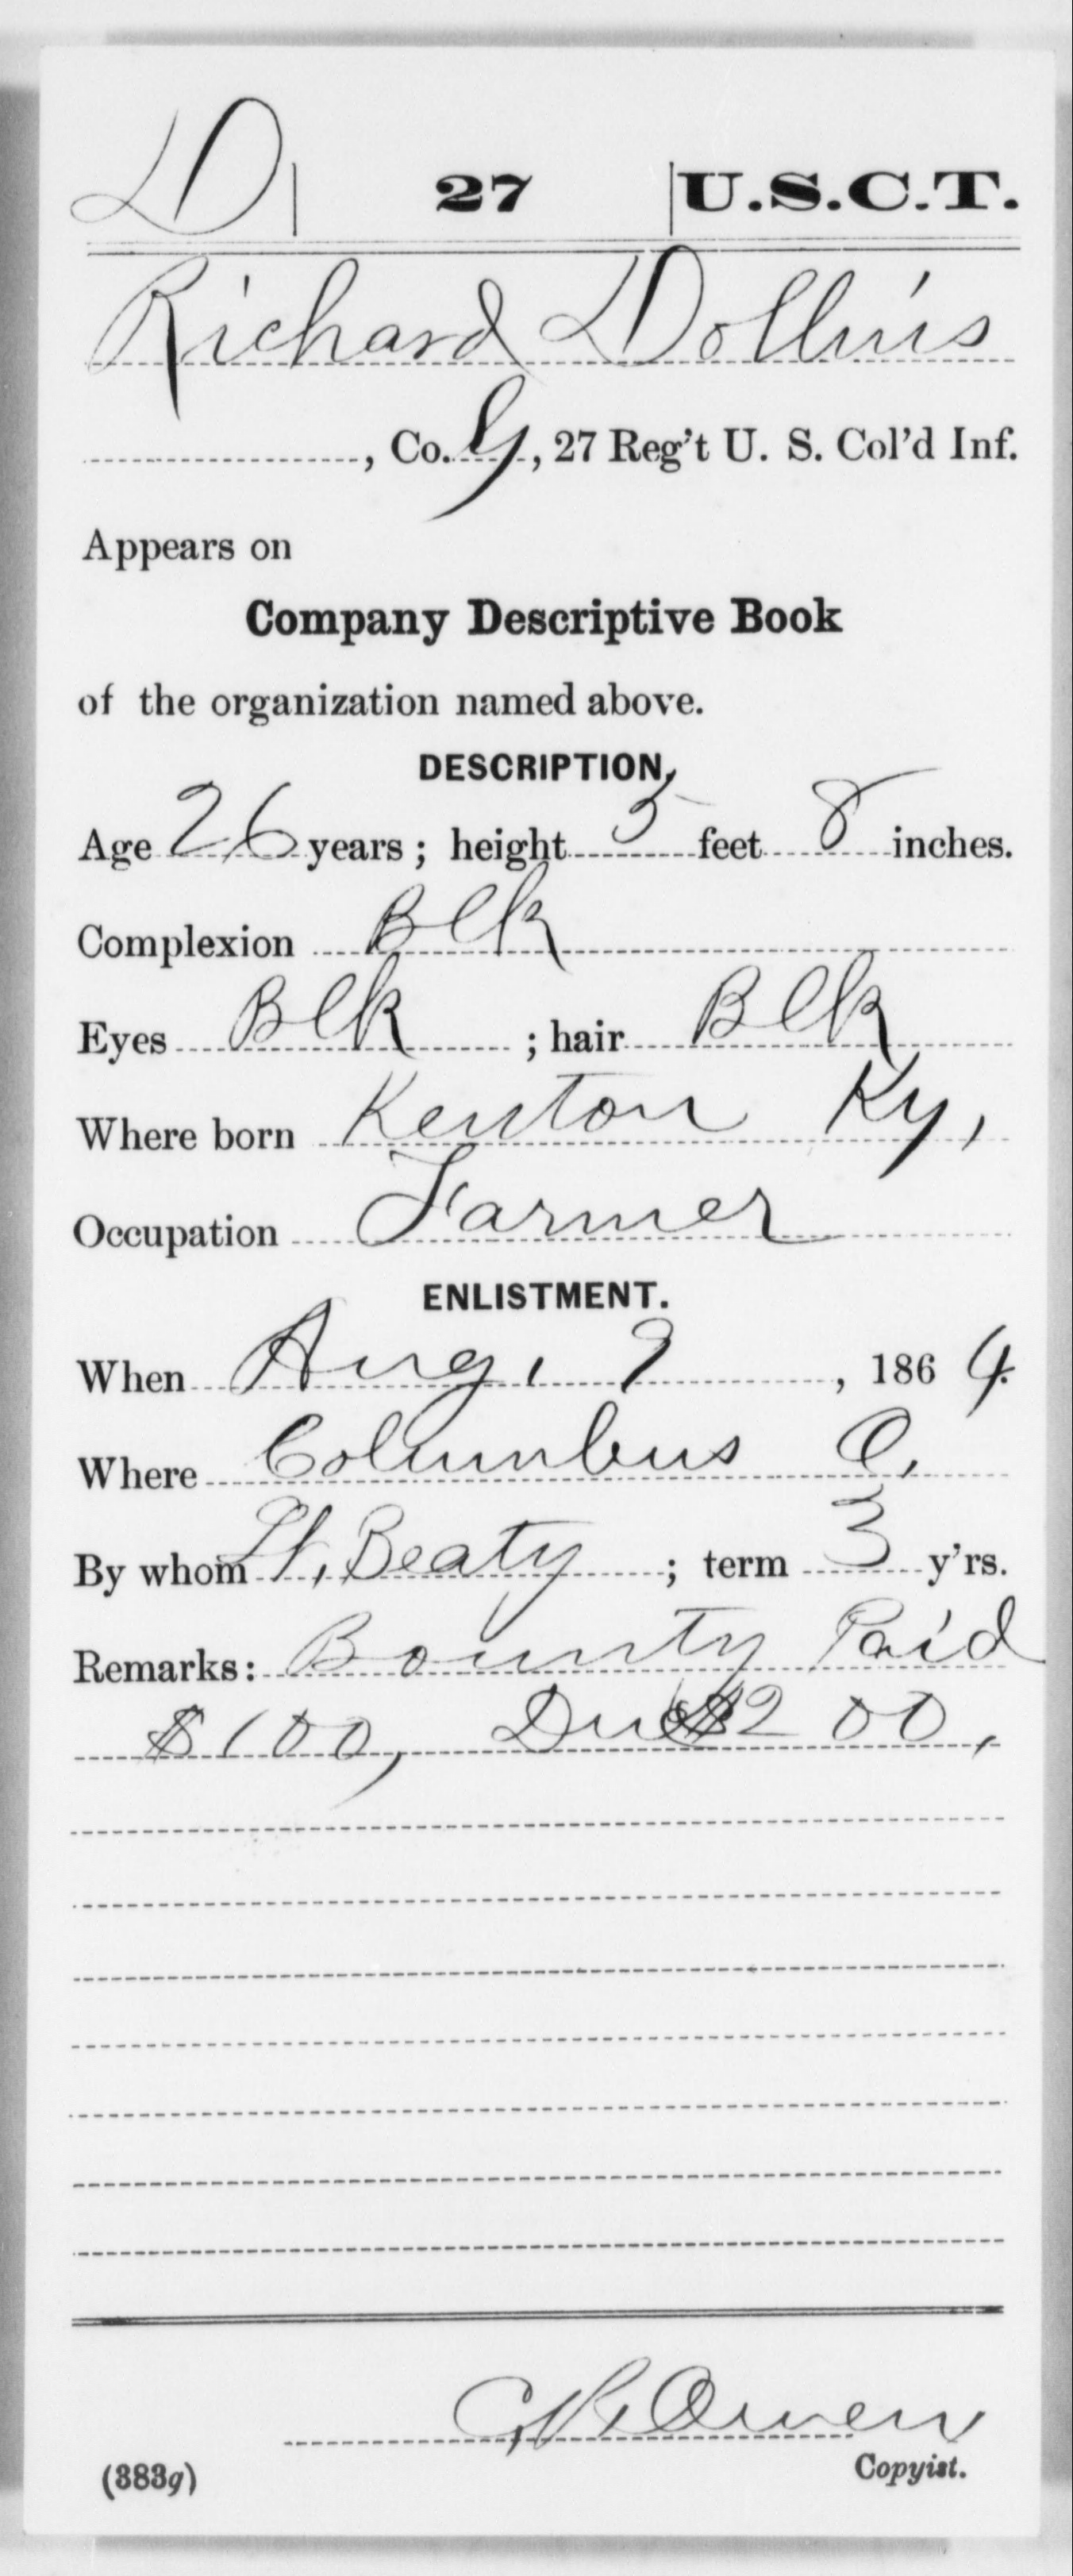 D 27 U.S.C.T.
Richard Dollins
, Co. G, 27 Reg't U. S. Col'd Inf.
Appears on
Company Descriptive Book
of the organization named above.
DESCRIPTION.
Age 26 years; height 5 feet 8 inches.
Complexion Blk
Eyes Blk; hair Blk
Where born Kenton Ky,
Occupation Farmer
ENLISTMENT.
When Aug. 9, 1864.
Where Columbus O.
By whom Lt. Beaty; term 3 y'rs.
Remarks: Bounty Paid
$100, Due $200.
C.R. Owen
Copyist.
(383g)